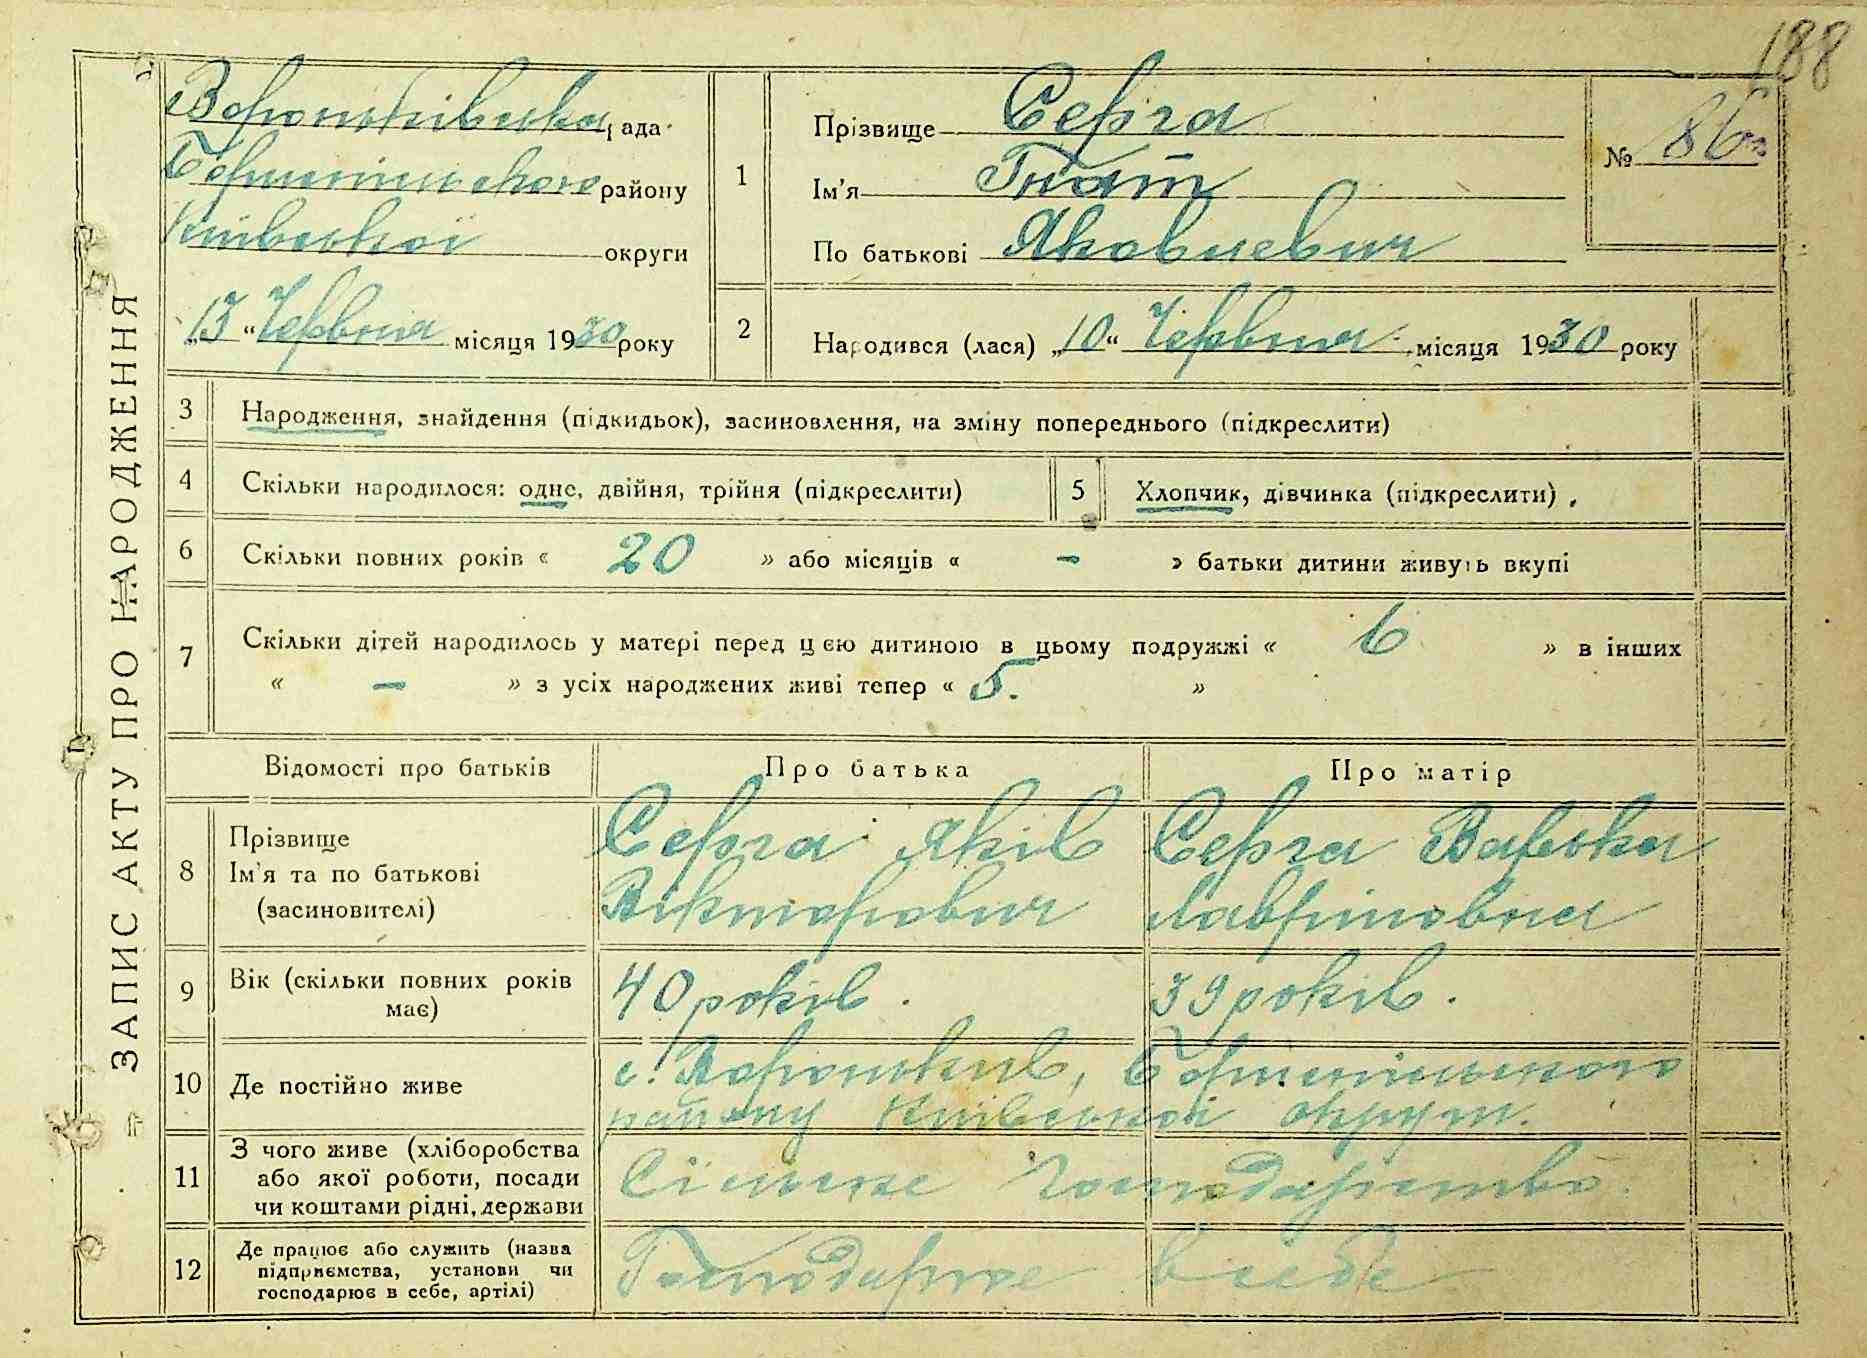 188
ЗАПИС АКТУ ПРО НАРОДЖЕННЯ
Вороньківська рада
Бориспільського району
Київської округи
„13“ Червня місяця 1930 року
1
Прізвище Серга
Ім’я Гнат
По батькові Яковлевич
№ 86
2
Народився (лася) „10“ Червня місяця 1930 року
3 Народження, знайдення (підкидьок), засиновлення, на зміну попереднього (підкреслити)
4 Скільки народилося: одне, двійня, трійня (підкреслити)
5 Хлопчик, дівчинка (підкреслити).
6 Скільки повних років « 20 » або місяців « – » батьки дитини живуть вкупі
7 Скільки дітей народилось у матері перед цією дитиною в цьому подружжі « 6 » в інших
« – » з усіх народжених живі тепер « 5. »
Відомості про батьків Про батька Про матір
8 Прізвище
Ім’я та по батькові
(засиновителі)
Серга Яків
Вікторович
Серга Варька
Лавріновна
9 Вік (скільки повних років
має)
40 років.
39 років.
10 Де постійно живе
с. Вороньків, Бориспільського
району Київської округи.
11 З чого живе (хліборобства
або якої роботи, посади
чи коштами рідні, держави
Сільське господарство.
12 Де працює або служить (назва
підприємства, установи чи
господарює в себе, артілі)
Господарює в себе